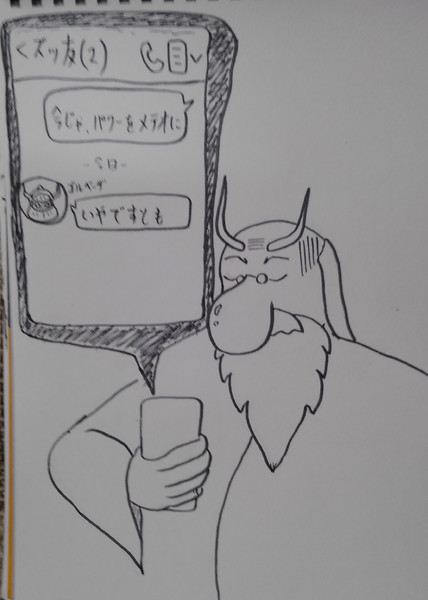 <ズッ友(2)
今じゃ、パワーをメテオに
-今日-
ゴルベーザ
いやですとも